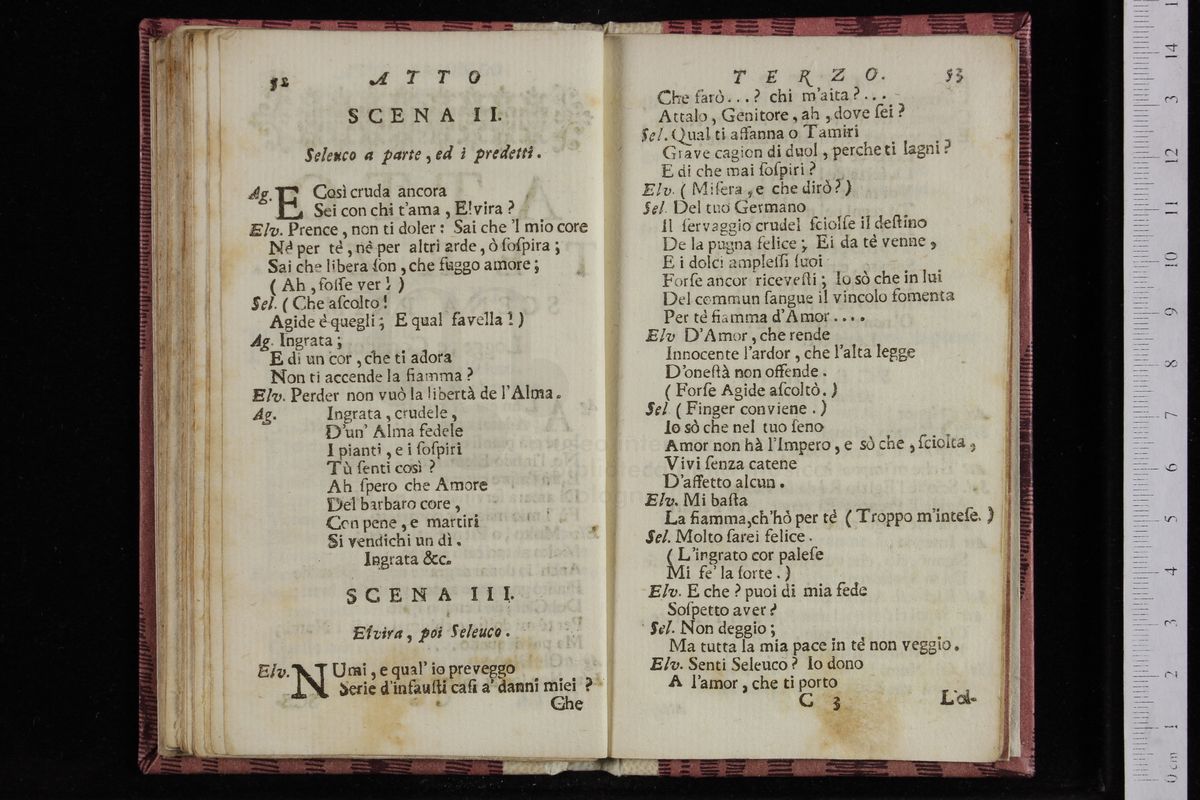 52 ATTO
SCENA II.
Seleuco a parte, ed i predetti.
Ag. E Così cruda ancora
Sei con chi t'ama, Elvira?
Elv. Prence, non ti doler: Sai che 'l mio core
Nè per tè, nè per altri arde, ò soſpira;
Sai che libera ſon, che fuggo amore;
(Ah, foſſe ver!)
Sel. (Che aſcolto!
Agide è quegli; E qual favella!)
Ag. Ingrata;
E di un cor, che ti adora
Non ti accende la fiamma?
Elv. Perder non vuò la libertà de l'Alma.
Ag. Ingrata, crudele,
D'un' Alma fedele
I pianti, e i ſoſpiri
Tù ſenti così?
Ah ſpero che Amore
Del barbaro core,
Con pene, e martiri
Si vendichi un dì.
Ingrata &c.
SCENA III.
Elvira, poi Seleuco.
Elv. NUmi, e qual' io preveggo
Serie d'infauſti caſi a' danni miei?
Che
TERZO. 53
Che farò...? chi m'aita?...
Attalo, Genitore, ah, dove ſei?
Sel. Qual ti affanna o Tamiri
Grave cagion di duol, perche ti lagni?
E di che mai ſoſpiri?
Elv. (Miſera, e che dirò?)
Sel. Del tuo Germano
Il ſervaggio crudel ſciolſe il deſtino
De la pugna felice; Ei da tè venne,
E i dolci ampleſſi ſuoi
Forſe ancor riceveſti; Io sò che in lui
Del commun ſangue il vincolo fomenta
Per tè fiamma d'Amor....
Elv D'Amor, che rende
Innocente l'ardor, che l'alta legge
D'oneſtà non offende.
(Forſe Agide aſcoltò.)
Sel (Finger conviene.)
Io sò che nel tuo ſeno
Amor non hà l'Impero, e sò che, ſciolta,
Vivi ſenza catene
D'affetto alcun.
Elv. Mi baſta
La fiamma, ch'hò per tè (Troppo m'inteſe.)
Sel. Molto ſarei felice.
(L'ingrato cor paleſe
Mi fe' la ſorte.)
Elv. E che? puoi di mia fede
Soſpetto aver?
Sel. Non deggio;
Ma tutta la mia pace in tè non veggio.
Elv. Senti Seleuco? Io dono
A l'amor, che ti porto
C 3 L'ol-